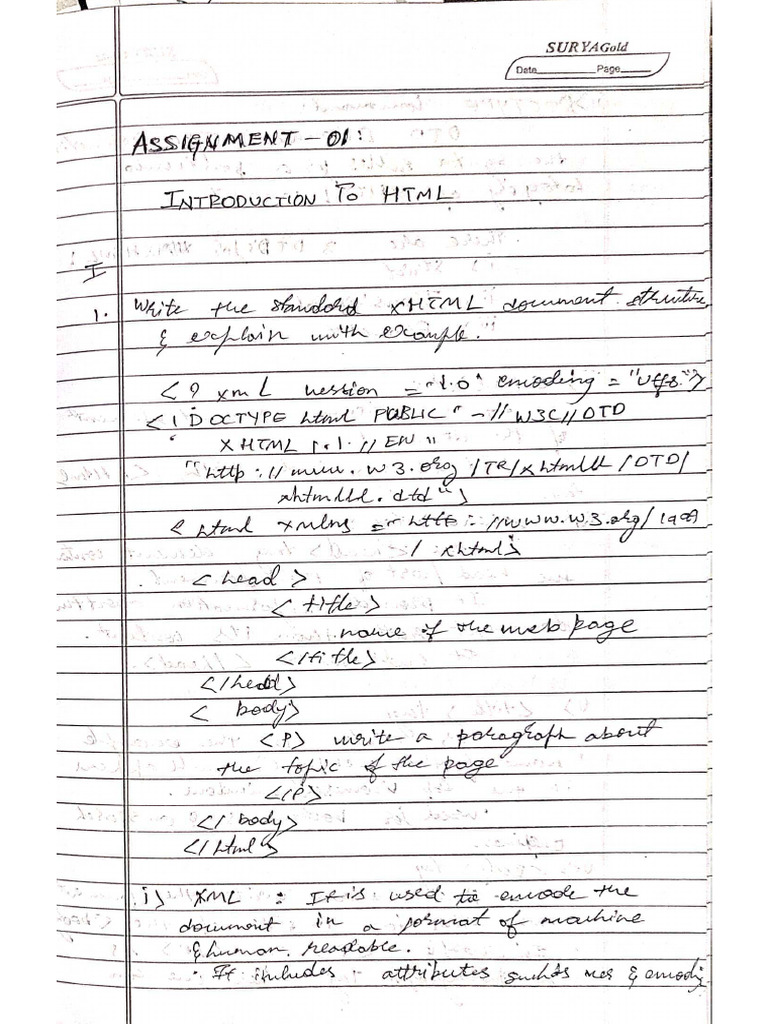 SURYAGold
Date Page
ASSIGNMENT - 01:
INTRODUCTION TO HTML
I
1. Write the standard XHTML document structure
& explain with example."
<? xmL version = "1.0" encoding = "Utf8."?>
<! DOCTYPE html PUBLIC "-// W3C// DTD
XHTML 1.1 // EN "
"http :// www. w3.org /TR/xhtml11 /DTD/
xhtml11. dtd ">
< html xmlns = "http: //www.w3.org/ 1999
/ xhtml>
<head >
< title>
name of the web page
</title>
</head>
< body>
<P> write a paragraph about
the topic of the page
</P>
</ body>
</ html >
i> XML : It is used to encode the
document in a format of machine
& human readable.
. It includes attributes such as & encodi